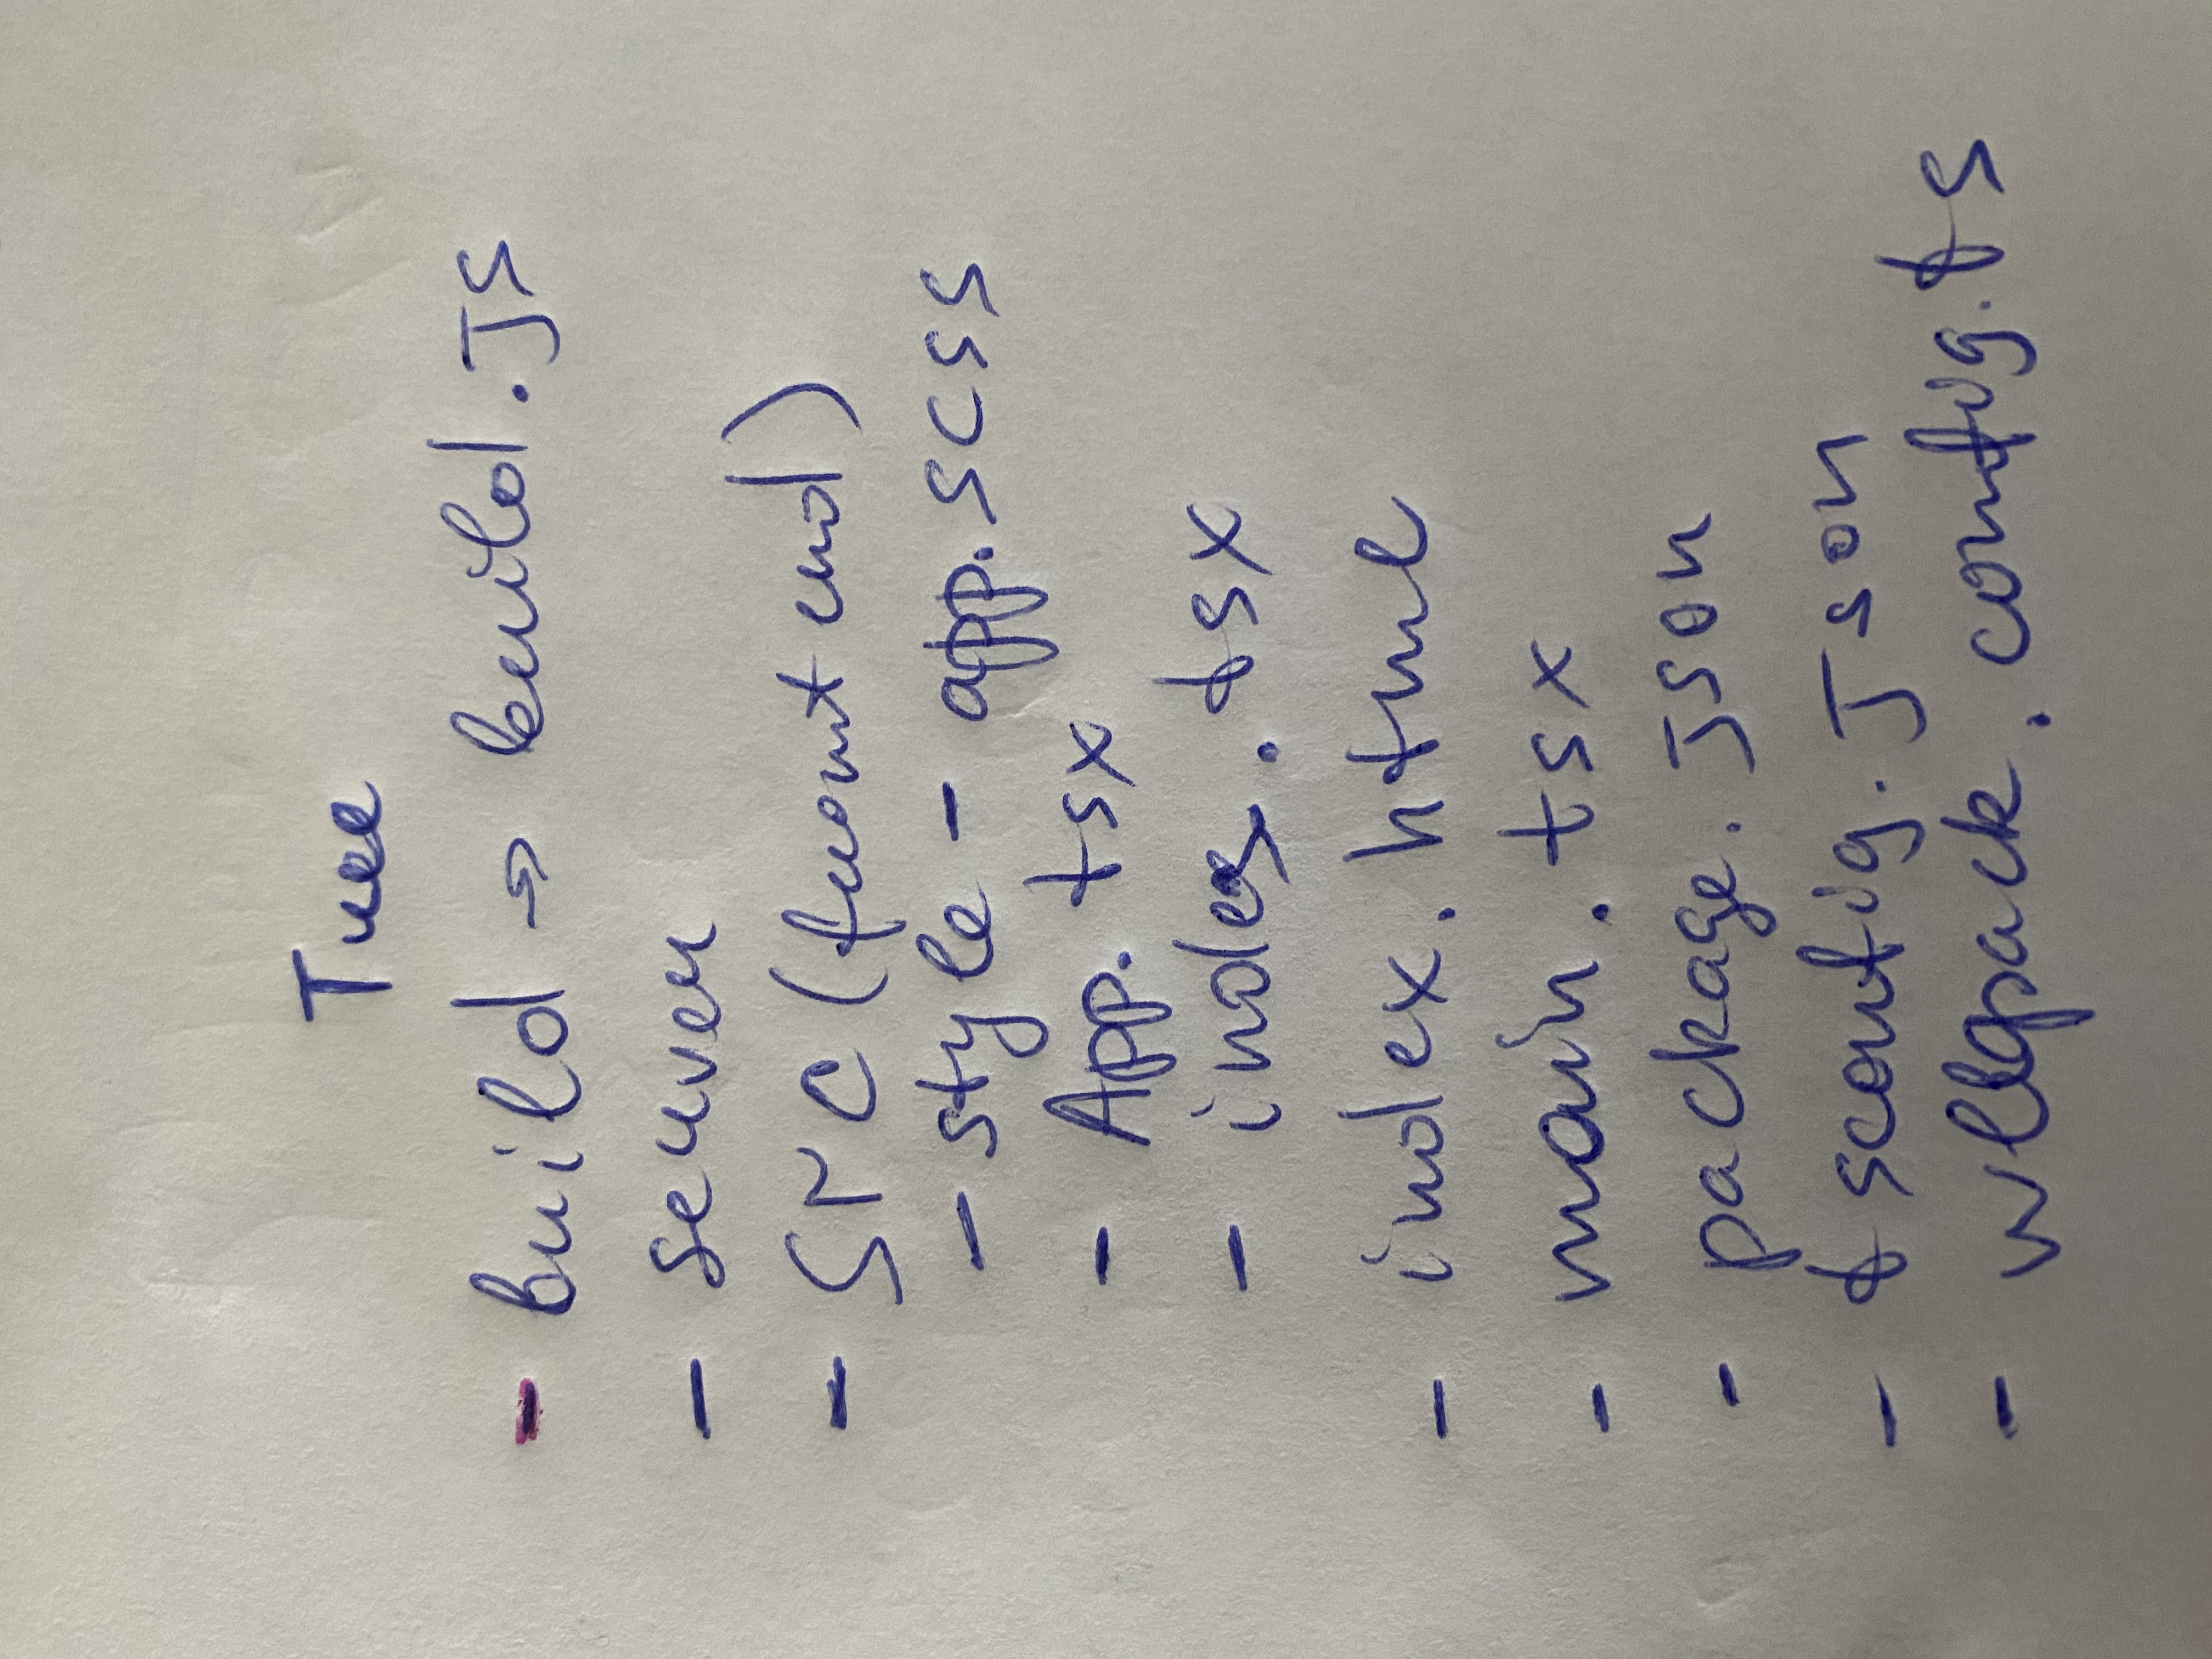 Tree
- build → build.js
- server
- src (frontend)
- style - app.scss
- App.tsx
- index.tsx
- index.html
- main.tsx
- package.json
- tsconfig.json
- webpack.config.ts